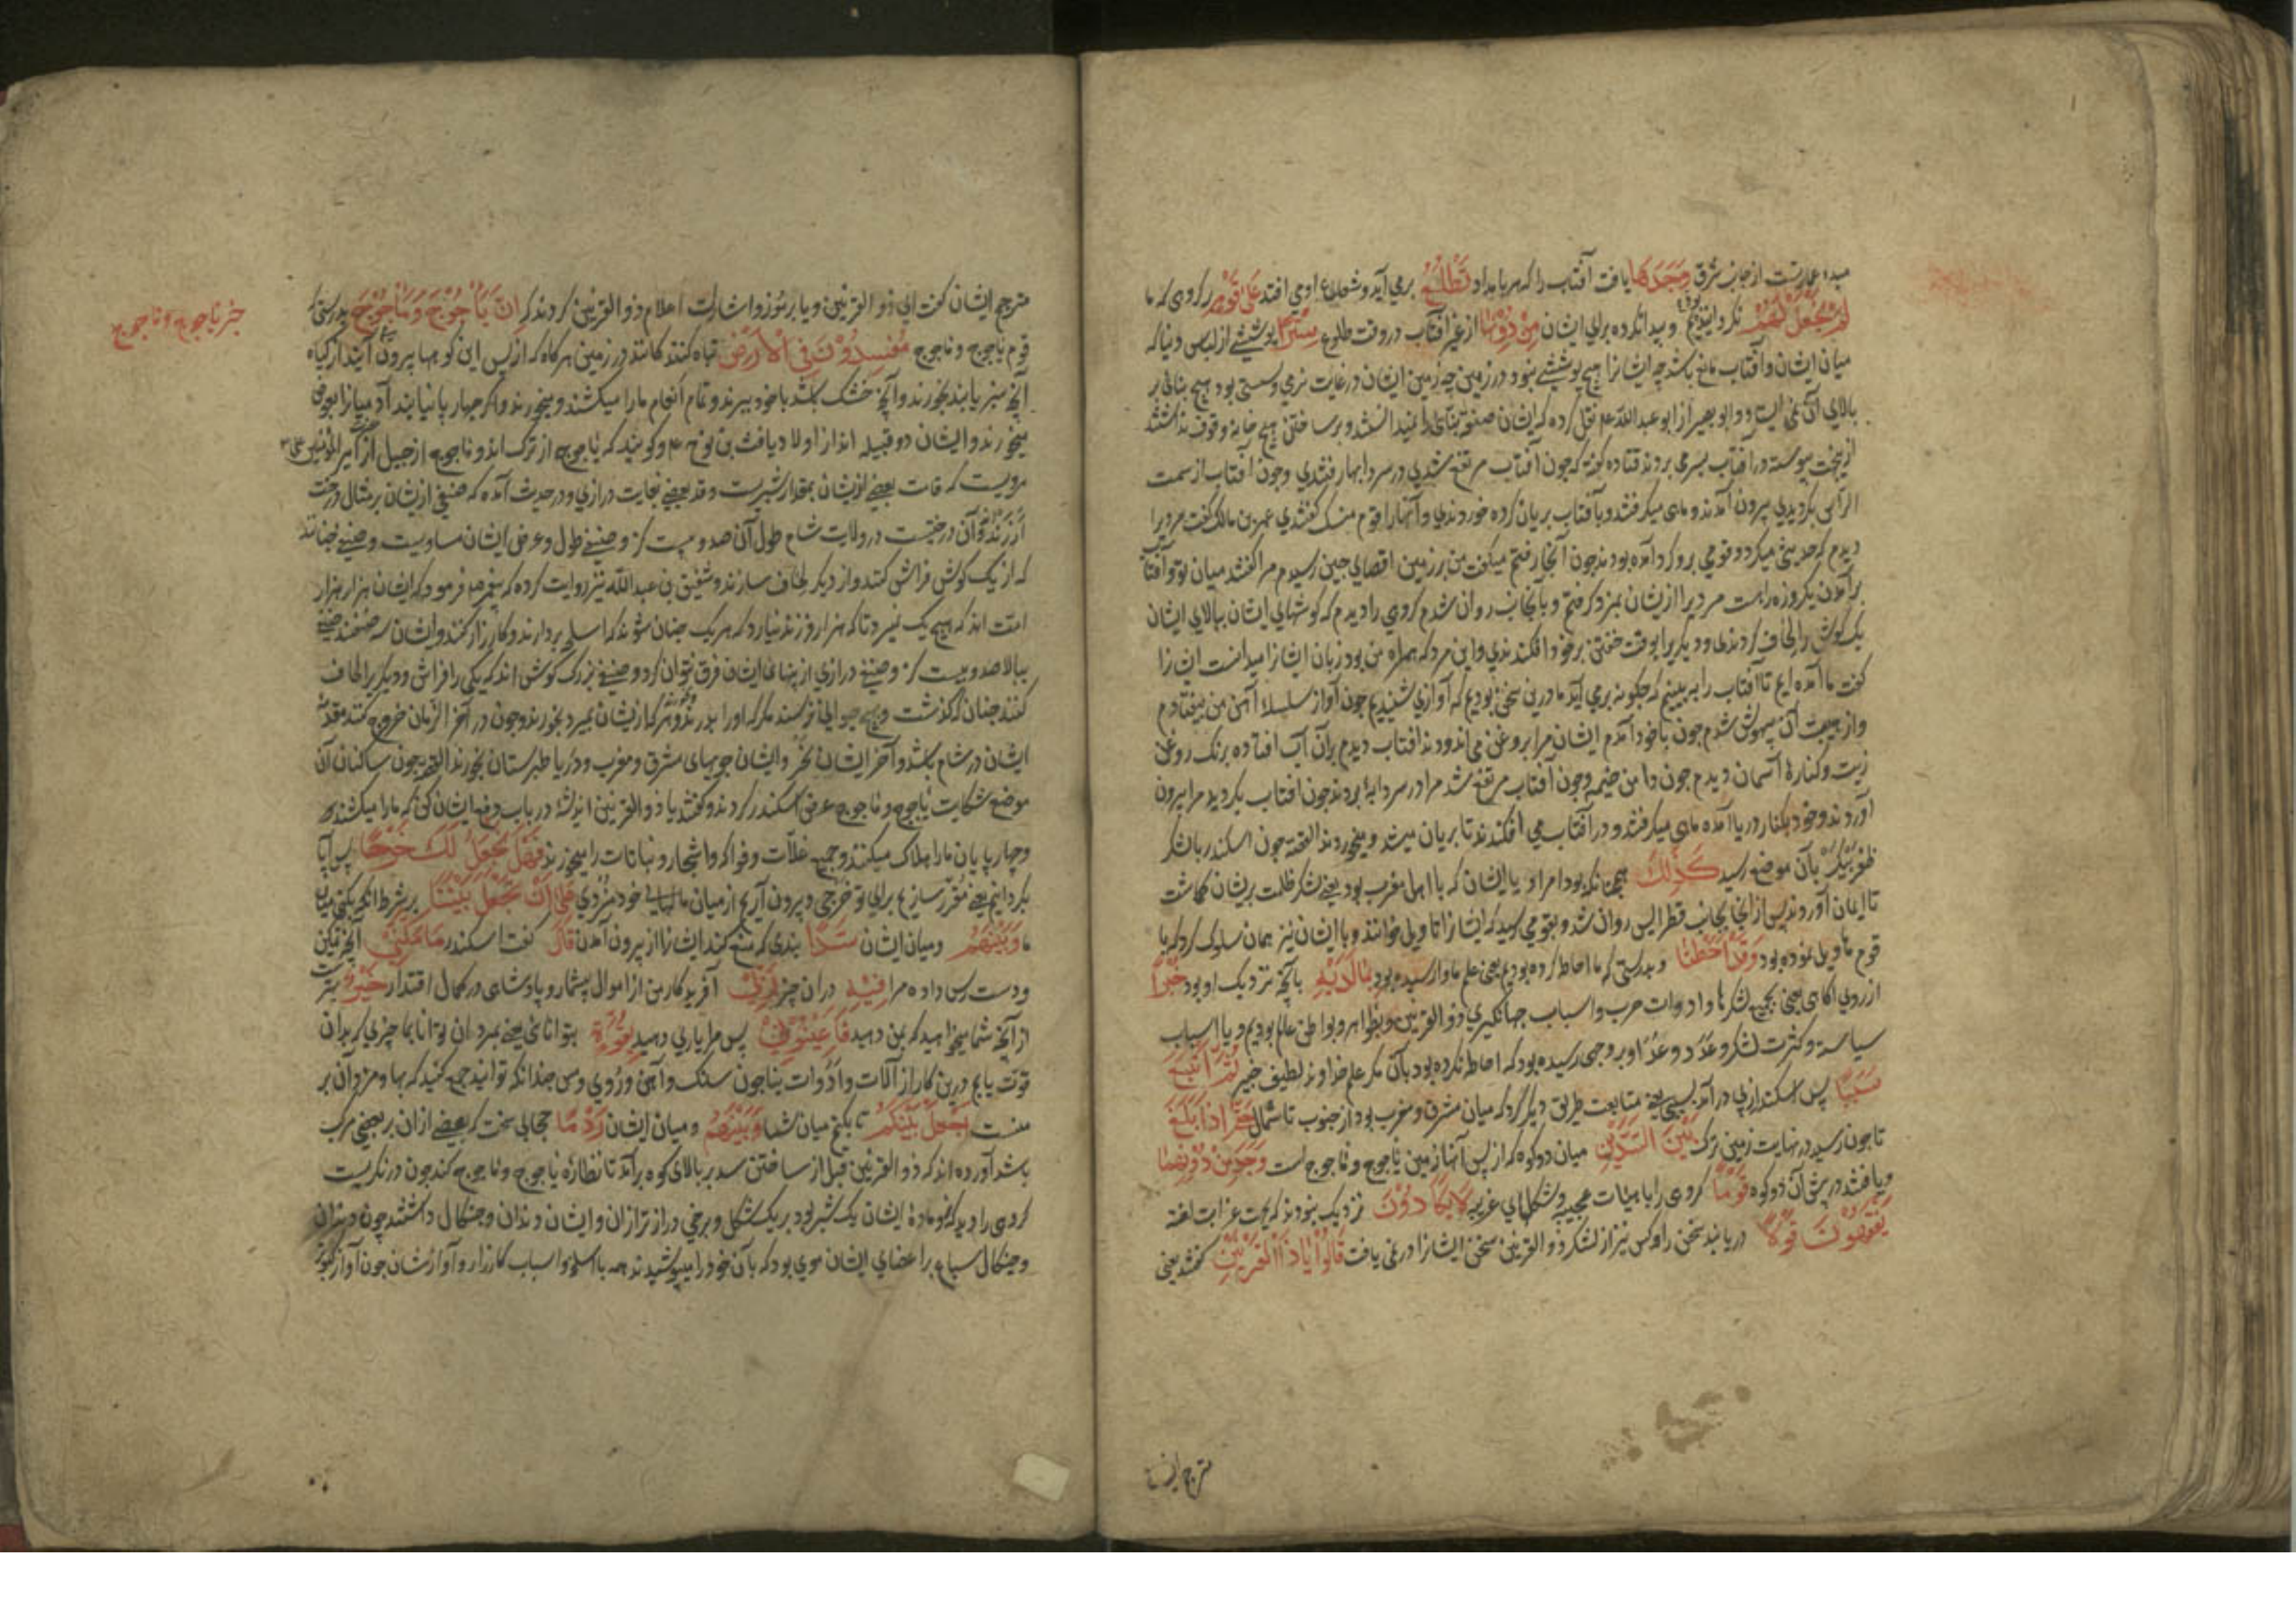 مبدء عمارتست از جانب شرق وَجَدَهَا یافت آفتاب را که هر بامداد تَطْلُعُ برمی آید و شعاع اوی افتد عَلٰی قَوْمٍ بر کروی که ما
لَمْ نَجْعَلْ لَهُمْ نکردانیدیم و پیدا نکرده برای ایشان مِنْ دُوْنِهَا از غیر آفتاب در وقت طلوع سِتْرًا پوششی از لباس و بنا که
میان ایشان و آفتاب مانع باشد چه ایشانرا هیچ پوششی نبود در زمین چه زمین ایشان در غایت نرمی و سستی بود هیچ بنائی بر
بالای آن نمی ایستد و ابو بصیر از ابو عبد الله ع نقل کرده که ایشان صنعت بنای را نمیدانستند و بر ساختن هیچ خانه وقوف نداشتند
ازین جهت پیوسته در آفتاب بسر می بردند قتاده کوید که چون آفتاب مرتفع شدی در سردابها رفتندی و چون آفتاب از سمت
الراس بکردیدی بیرون آمدند و ماهی میکرفتند و بآفتاب بریان کرده خوردندی و آنها را قوم منسک کفتندی عمر بن مالک کفت مردیرا
دیدم که حدیث میکرد و قومی برو کرد آمده بودند چون آنجا رفتم میکفت من بر زمین اقصای چین رسیدم مرا کفتند میان تو و آفتاب
برآمدن یکروزه راهست مردیرا از ایشان بمزد کرفتم و بآنجانب روان شدم کروی را دیدم که کوشهای ایشان ببالای ایشان
یک کوش را لحاف کردندی و دیکریرا بوقت خفتن بر خود افکندندی و این مرد که همراه من بود زبان ایشانرا میدانست ایشانرا
کفت ما آمده ایم تا آفتاب را ببینیم که چکونه برمی آید ما درین سخن بودیم که آوازی شنیدیم چون آواز سلسله آهن من بیفتادم
و از هیبت آن بیهوش شدم چون باخود آمدم ایشان مرا بروغن می اندودند آفتاب دیدم بر آن آب افتاده برنک روغن
زیت و کناره آسمان دیدم چون دامن خیمه و چون آفتاب مرتفع شد مرا در سردابه بردند چون آفتاب بکردید مرا بیرون
آوردند و خود بکنار دریا آمده ماهی میکرفتند و در آفتاب می افکندند تا بریان میشد و میخوردند القصه چون اسکندر با لشکر
ظفر پیکر بآن موضع رسید كَذٰلِكَ همچنانکه بود امر او با ایشان که با اهل مغرب بود یعنی لشکر ظلمت بریشان کماشت
تا ایمان آوردند پس از آنجا بجانب قطر ایس روان شد و بقومی رسید که ایشانرا تاویل خوانند و با ایشان نیز همان سلوک کرد که با
قوم هاویل نموده بود وَقَدْ اَحَطْنَا و بدرستی که ما احاطه کرده بودیم یعنی علم ما وا رسیده بود بِمَا لَدَيْهِ بآنچه نزدیک او بود خُبْرًا
از روی آکاهی یعنی بجمیع لشکرها و ادوات حرب و اسباب جهانکیری ذو القرنین و بظواهر و بواطن عالم بودیم و یا اسباب
سیاست و کثرت لشکر و عُدَد و عَدَد او بر وجهی رسیده بود که احاطه نکرده بود بآن مکر علم خداوند لطیف خبیر ثُمَّ اَتْبَعَ
سَبَبًا پس اسکندر از پی در آمد سببی یعنی متابعت طریق دیکر کرد که میان مشرق و مغرب بود از جنوب تا شمال حَتّٰى اِذَا بَلَغَ
تا چون رسید در نهایت زمین ترک بَيْنَ السَّدَّيْنِ میان دو کوه که از پس آنها زمین یاجوج و ماجوج است وَجَدَ مِنْ دُوْنِهِمَا
و یافتند در پیش آن دو کوه قَوْمًا کروی را با هیئات عجیبه و شکلهای غریبه لَا يَكَادُوْنَ نزدیک نبودند که بجهت غرابت لغت
يَفْقَهُوْنَ قَوْلًا دریابند سخن را و کس نیز از لشکر ذو القرنین سخن ایشانرا در نمی یافت قَالُوْا يَا ذَا الْقَرْنَيْنِ کفتند یعنی
مترجم ایشان
مترجم ایشان کفت ای ذو القرنین و یا برموز و اشارات اعلام ذو القرنین کردند که اِنَّ يَأْجُوْجَ وَمَأْجُوْجَ بدرستی که
خبر یاجوج و ماجوج
قوم یاجوج و ماجوج مُفْسِدُوْنَ فِى الْاَرْضِ تباه کنندکانند در زمین هر کاه که از پس این کوهها بیرون آیند از کیاه
آنچه سبز یابند بخورند و آنچه خشک باشد باخود ببرند و تمام انعام ما را میکشند و میخورند و اکر چهار پا نیابند آدمیانرا بعوض
میخورند و ایشان دو قبیله اند از اولاد یافث بن نوح ع و کویند که یاجوج از ترک اند و ماجوج از جیل از امیر المؤمنین علی ع
مرویست که قامت بعضی از ایشان بمقدار شبریست و قد بعضی بغایت درازی و در حدیث آمده که صنفی از ایشان بر مثال درخت
اَرزَند و آن درختیست در ولایت شام طول آن صد و بیست کز و صنفی طول و عرض ایشان مساویست و صنفی چنانند
که از یک کوش فراش کنند و از دیکر لحاف سازند و شقیق بن عبد الله نیز روایت کرده که پیغمبر ص فرمود که ایشان هزار هزار
امت اند که هیچ یک نمیرد تا که هزار فرزند نیارد که هر یک چنان شوند که اسلحه بردارند و کارزار کنند و ایشان سه صنفند صنفی
ببالا صد و بیست کز و صنفی درازی از پهنای ایشان فرق نتوان کرد و صنفی بزرک کوش اند که یکی را فراش و دیکر را لحاف
کنند چنان که کذشت و هیچ حیوانی نرسند مکر که او را بدرند و هر که از ایشان بمیرد بخورند و چون در آخر الزمان خروج کنند مقدمه
ایشان در شام باشد و آخر ایشان بخر و ایشان جویهای مشرق و مغرب و دریا طبرستان بخورند القصه چون ساکنان آن
موضع شکایت یاجوج و ماجوج عرض اسکندر کردند و کفتند یا ذو القرنین اندیشه در باب دفع ایشان کن که ما را میکشند
و چهار پایان ما را هلاک میکنند و جمیع غلات و فواکه و اشجار و نباتات را میخورند فَهَلْ نَجْعَلُ لَكَ خَرْجًا پس آیا
بکردانیم یعنی مقرر سازیم برای تو خرجی و بیرون آریم از میان مالهای خود مزدی عَلٰى اَنْ تَجْعَلَ بَيْنَنَا بر شرط آنکه بکنی میان
ما وَبَيْنَهُمْ و میان ایشان سَدًّا بندی که منع کند ایشانرا از بیرون آمدن قَالَ کفت اسکندر مَا مَكَّنِّىْ آنچه تمکین
و دست رس داده مرا فِيْهِ در آن چیز رَبِّىْ آفریدکار من از اموال بیشمار و پادشاهی در کمال اقتدار خَيْرٌ بهتر است
از آنچه شما میخواهید که بمن دهید فَاَعِيْنُوْنِىْ پس مرا یاری دهید بِقُوَّةٍ بتوانائی یعنی بمردان توانا بما چیزی که بدان
قوت یابم درین کار از آلات و ادوات بنا چون سنک و آهن و روی و مس چندانکه توانید جمع کنید که بها و مزد آن بر
منست اَجْعَلْ بَيْنَكُمْ تا بکنم میان شما وَبَيْنَهُمْ و میان ایشان رَدْمًا حجابی سخت که بعضی از آن بر بعضی مرکب
باشد آورده اند که ذو القرنین قبل از ساختن سد بر بالای کوه برآمد تا نظاره یاجوج و ماجوج کند چون در نکریست
کروی را دید که نر و ماده ایشان یک شبر بود بر یک شکل و برخی دراز تر از آن و ایشان دندان و چنکال داشتند چون دندان
و چنکال سباع بر اعضای ایشان موی بود که بآن خود را میپوشیدند همه با سلاح و اسباب کارزار و آوازشان چون آواز کبوتر